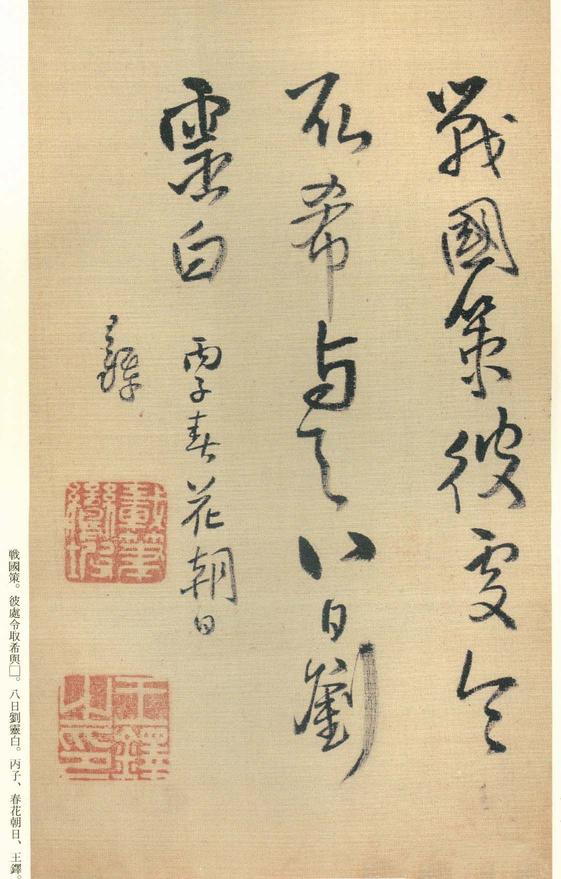 戰國策彼處令
取希與之八日劉
靈白
丙子春花朝日
鐸
王鐸之印
戰國策。彼處令取希與□。八日劉靈白。丙子、春花朝日、王鐸。